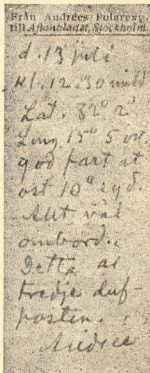 Från Andrées Polarexp.
till Aftonbladet, Stockholm.
d. 13 juli
kl. 12.30 midd
Lat. 82° 2'
Long 15° 5' ost.
god fart åt
ost 10° syd.
Allt väl
ombord.
Detta är
tredje duf-
posten.
Andrée